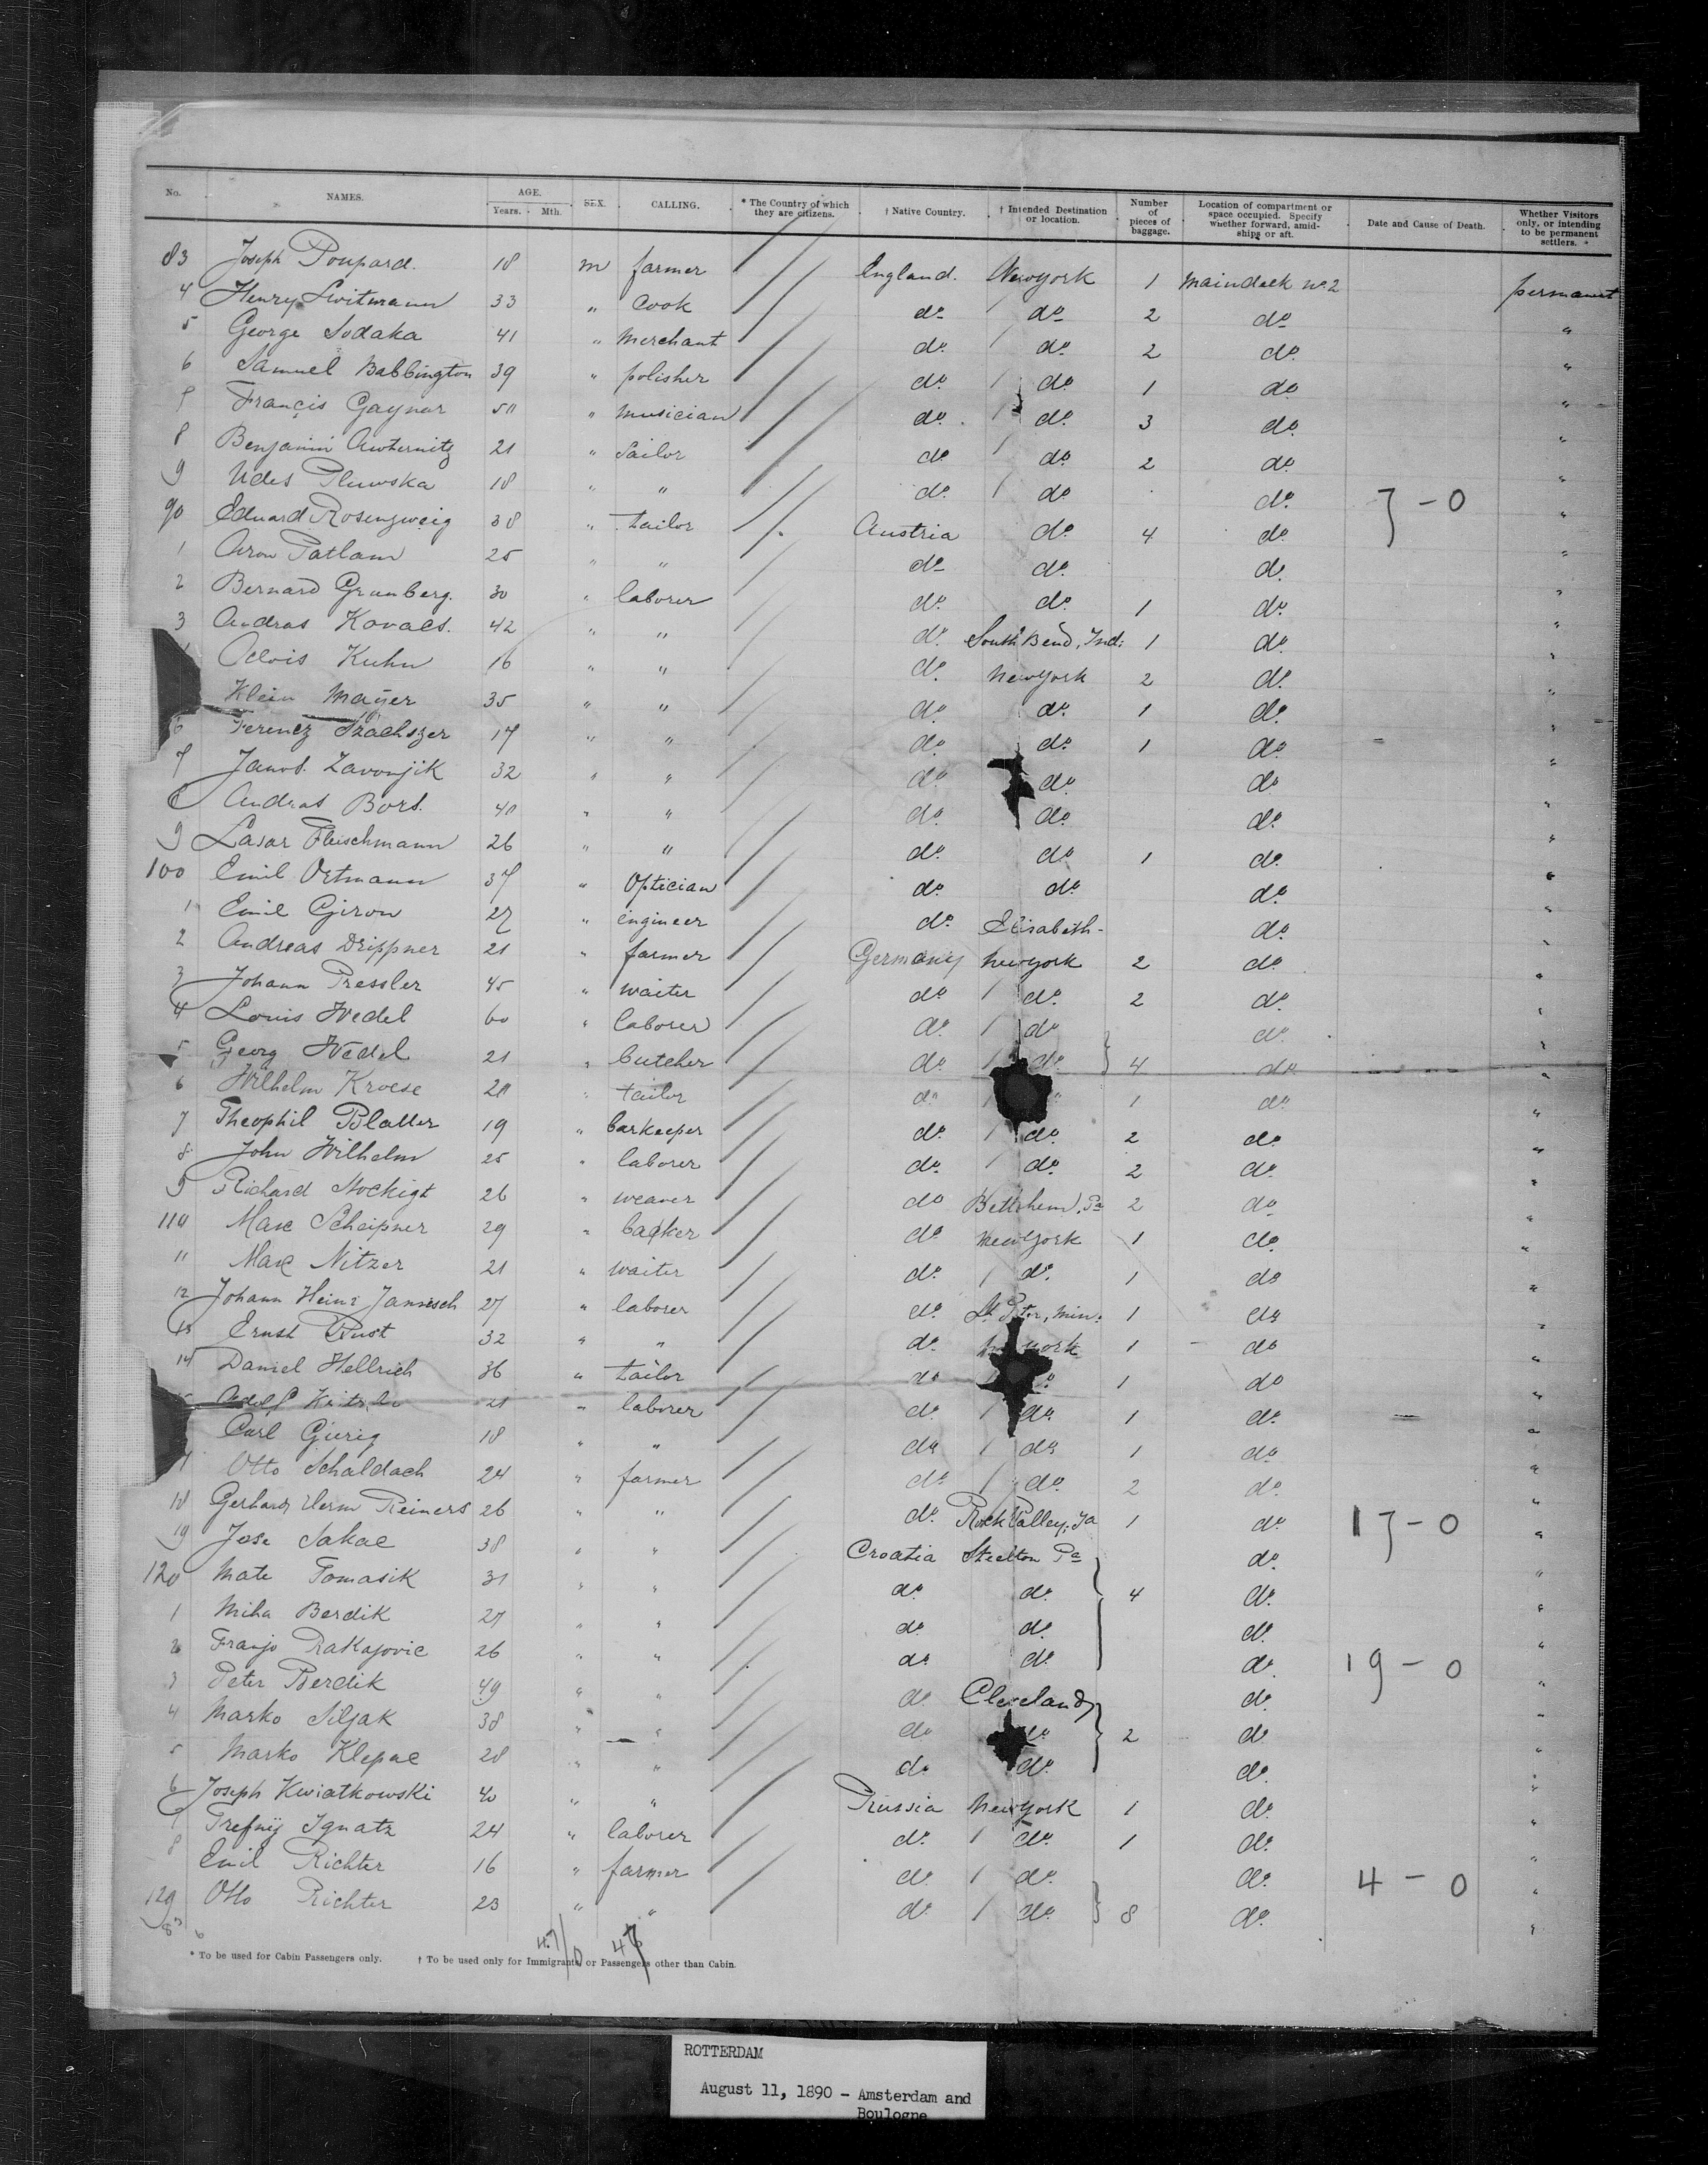 No. NAMES. AGE. Years. Mth. SEX. CALLING. * The Country of which they are citizens. † Native Country. † Intended Destination or location. Number of pieces of baggage. Location of compartment or space occupied. Specify whether forward, amidships or aft. Date and Cause of Death. Whether Visitors only, or intending to be permanent settlers.
83 Joseph Poupard. 18 m farmer England. Newyork 1 maindeck no 2 permanent
4 Henry Switmann 33 " Cook do do 2 do "
5 George Sudaka 41 " Merchant do do 2 do "
6 Samuel Babbington 39 " polisher do do 1 do "
7 Francis Gaynor 50 " musician do do 3 do "
8 Benjamin 21 " Sailor do do 2 do "
9 Udes Pluwska 18 " " do do do 7 - 0 "
90 Eduard Rosenzweig 38 " tailor Austria do 4 do "
1 Aron Patlam 25 " " do do do "
2 Bernard Grunberg. 30 " laborer do do 1 do "
3 Andras Kovacs. 42 " " do South Bend, Ind: 1 do "
Alois Kuhn 16 " " do Newyork 2 do "
Klein Mayer 35 " " do do 1 do "
6 Ferencz 17 " " do do 1 do "
7 Janos. Zavonjik 32 " " do do do "
8 Andras Bors. 40 " " do do do "
9 Lasar Fleischmann 26 " " do do 1 do "
100 Emil Ortmann 37 " Optician do do do "
1 Emil Giron 27 " engineer do Elisabeth- do "
2 Andreas Drippner 21 " farmer Germany Newyork 2 do "
3 Johann Pressler 45 " waiter do do 2 do "
4 Louis Wedel 60 " laborer do do do "
5 Georg Wedel 21 " butcher do do 4 do "
6 Wilhelm Kroese 20 " tailor do " 1 do "
7 Theophil Blatter 19 " barkeeper do do 2 do "
8 John Wilhelm 25 " laborer do do 2 do "
9 Richard Nockigt 26 " weaver do Bethlehem, Pa 2 do "
110 Max Scheipner 29 " backer do Newyork 1 do "
11 Max Nitzer 21 " waiter do do 1 do "
12 Johann Heinr Jannesch 27 " laborer do St Peter, Min: 1 do "
13 Ernst Rust 32 " " do Newyork 1 do "
14 Daniel Hellrich 36 " tailor do do 1 do "
Adolf 21 " laborer do do 1 do "
Carl Gierig 18 " " do do 1 do "
7 Otto Schaldach 24 " farmer do do 2 do "
18 Gerhard Herm Reiners 26 " " do Rock Valley, Ja 1 do 17 - 0 "
19 Jose Sakac 38 " " Croatia Steelton Pa do "
120 Mate Tomasik 31 " " do do 4 do "
1 Miha Berdik 27 " " do do do "
2 Franjo Rakajovic 26 " " do do do 19 - 0 "
3 Peter Berdik 49 " " do Cleveland do "
4 Marko Siljak 38 " " do do 2 do "
5 Marko Klepac 28 " " do do do "
6 Joseph Kwiatkowski 40 " " Prussia Newyork 1 do "
7 Trefnij Ignatz 24 " laborer do do 1 do "
8 Emil Richter 16 " farmer do do do 4 - 0 "
129 Otto Richter 23 " " do do 8 do "
47/0 47
* To be used for Cabin Passengers only. † To be used only for Immigrants, or Passengers other than Cabin.
ROTTERDAM
August 11, 1890 - Amsterdam and
Boulogne